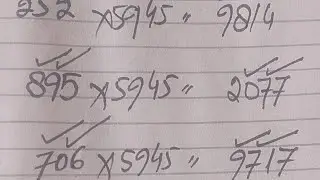 252 ×5945 〃 9814
895 ×5945 〃 2077
706 ×5945 〃 9717